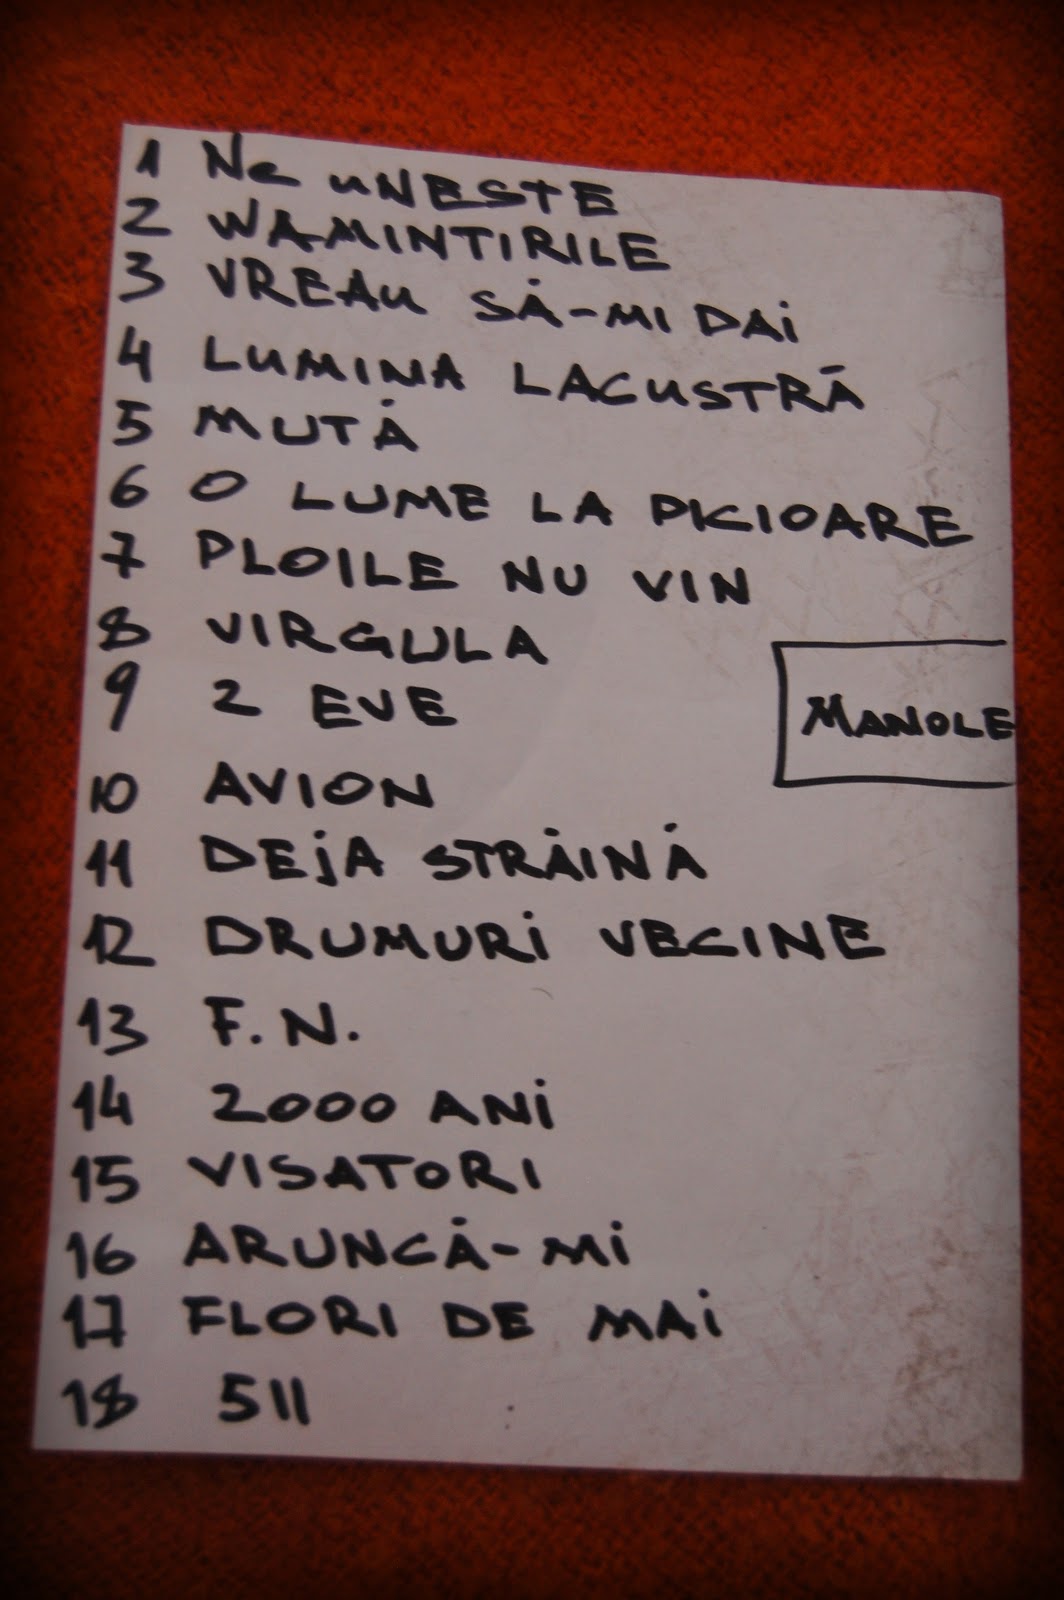 1 Ne uNESTE
2 WAMINTIRILE
3 VREAU SĂ-MI DAi
4 LUMINA LACUSTRĂ
5 MUTĂ
6 O LUME LA PICIOARE
7 PLOILE NU VIN
8 VIRGULA
9 2 EVE
MANOLE
10 AVION
11 DEjA STRĂINĂ
12 DRUMURi VECINE
13 F.N.
14 2000 ANi
15 VISATORI
16 ARUNCĂ-Mi
17 FLORI DE MAi
18 511